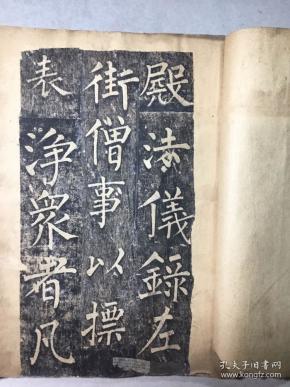 殿法儀錄左
街僧事以摽
表淨衆者凡
孔夫子旧书网